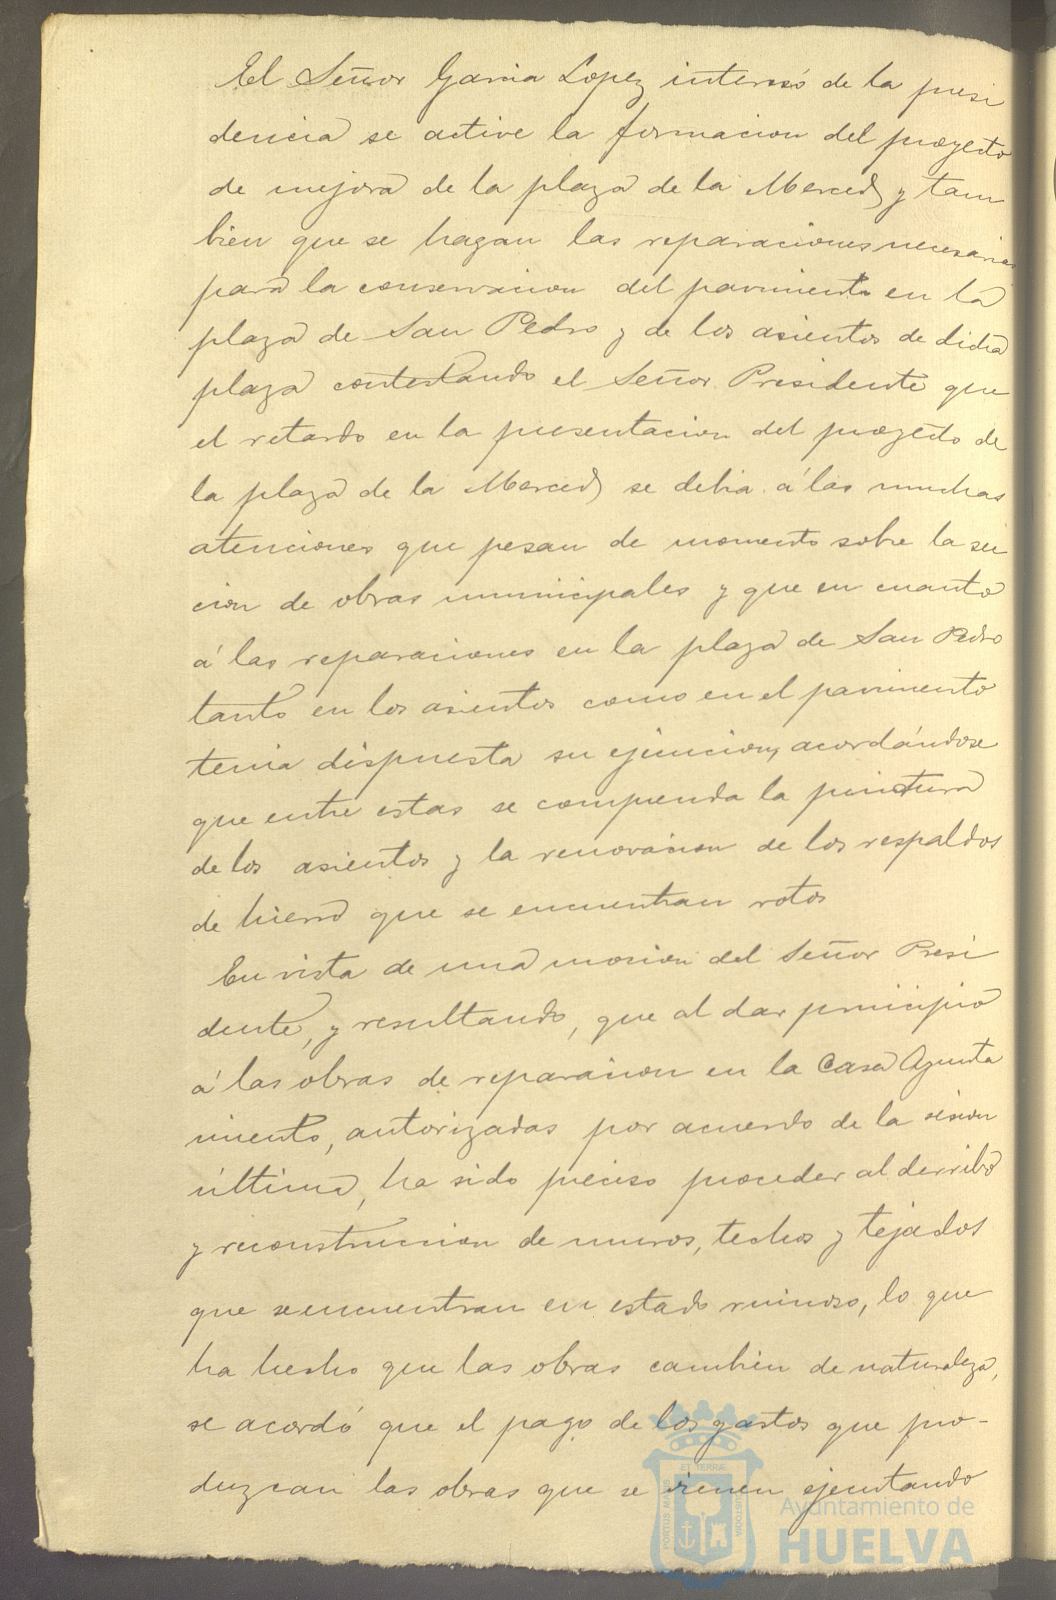 El Señor Garcia Lopez interesó de la presi
dencia se active la formacion del proyecto
de mejora de la plaza de la Merced y tam
bien que se hagan las reparaciones necesarias
para la conservacion del pavimento en la
plaza de San Pedro y de los asientos de dicha
plaza contestando el Señor Presidente que
el retardo en la presentacion del proyecto de
la plaza de la Merced se debia á las muchas
atenciones que pesan de momento sobre la sec
cion de obras municipales y que en cuanto
á las reparaciones en la plaza de San Pedro
tanto en los asientos como en el pavimento
tenia dispuesta su ejecucion, acordándose
que entre estas se comprenda la pintura
de los asientos y la renovacion de los respaldos
de hierro que se encuentran rotos
En vista de una mocion del Señor Presi
dente, y resultando, que al dar principio
á las obras de reparacion en la Casa Ayunta
miento, autorizadas por acuerdo de la sesion
última, ha sido preciso proceder al derribo
y reconstruccion de muros, techos y tejados
que se encuentran en estado ruinoso, lo que
ha hecho que las obras cambien de naturaleza,
se acordó que el pago de los gastos que pro-
duzcan las obras que se vienen ejecutando
ET TERRAE
PORTUS MARIS
CUSTODIA
Ayuntamiento de
HUELVA